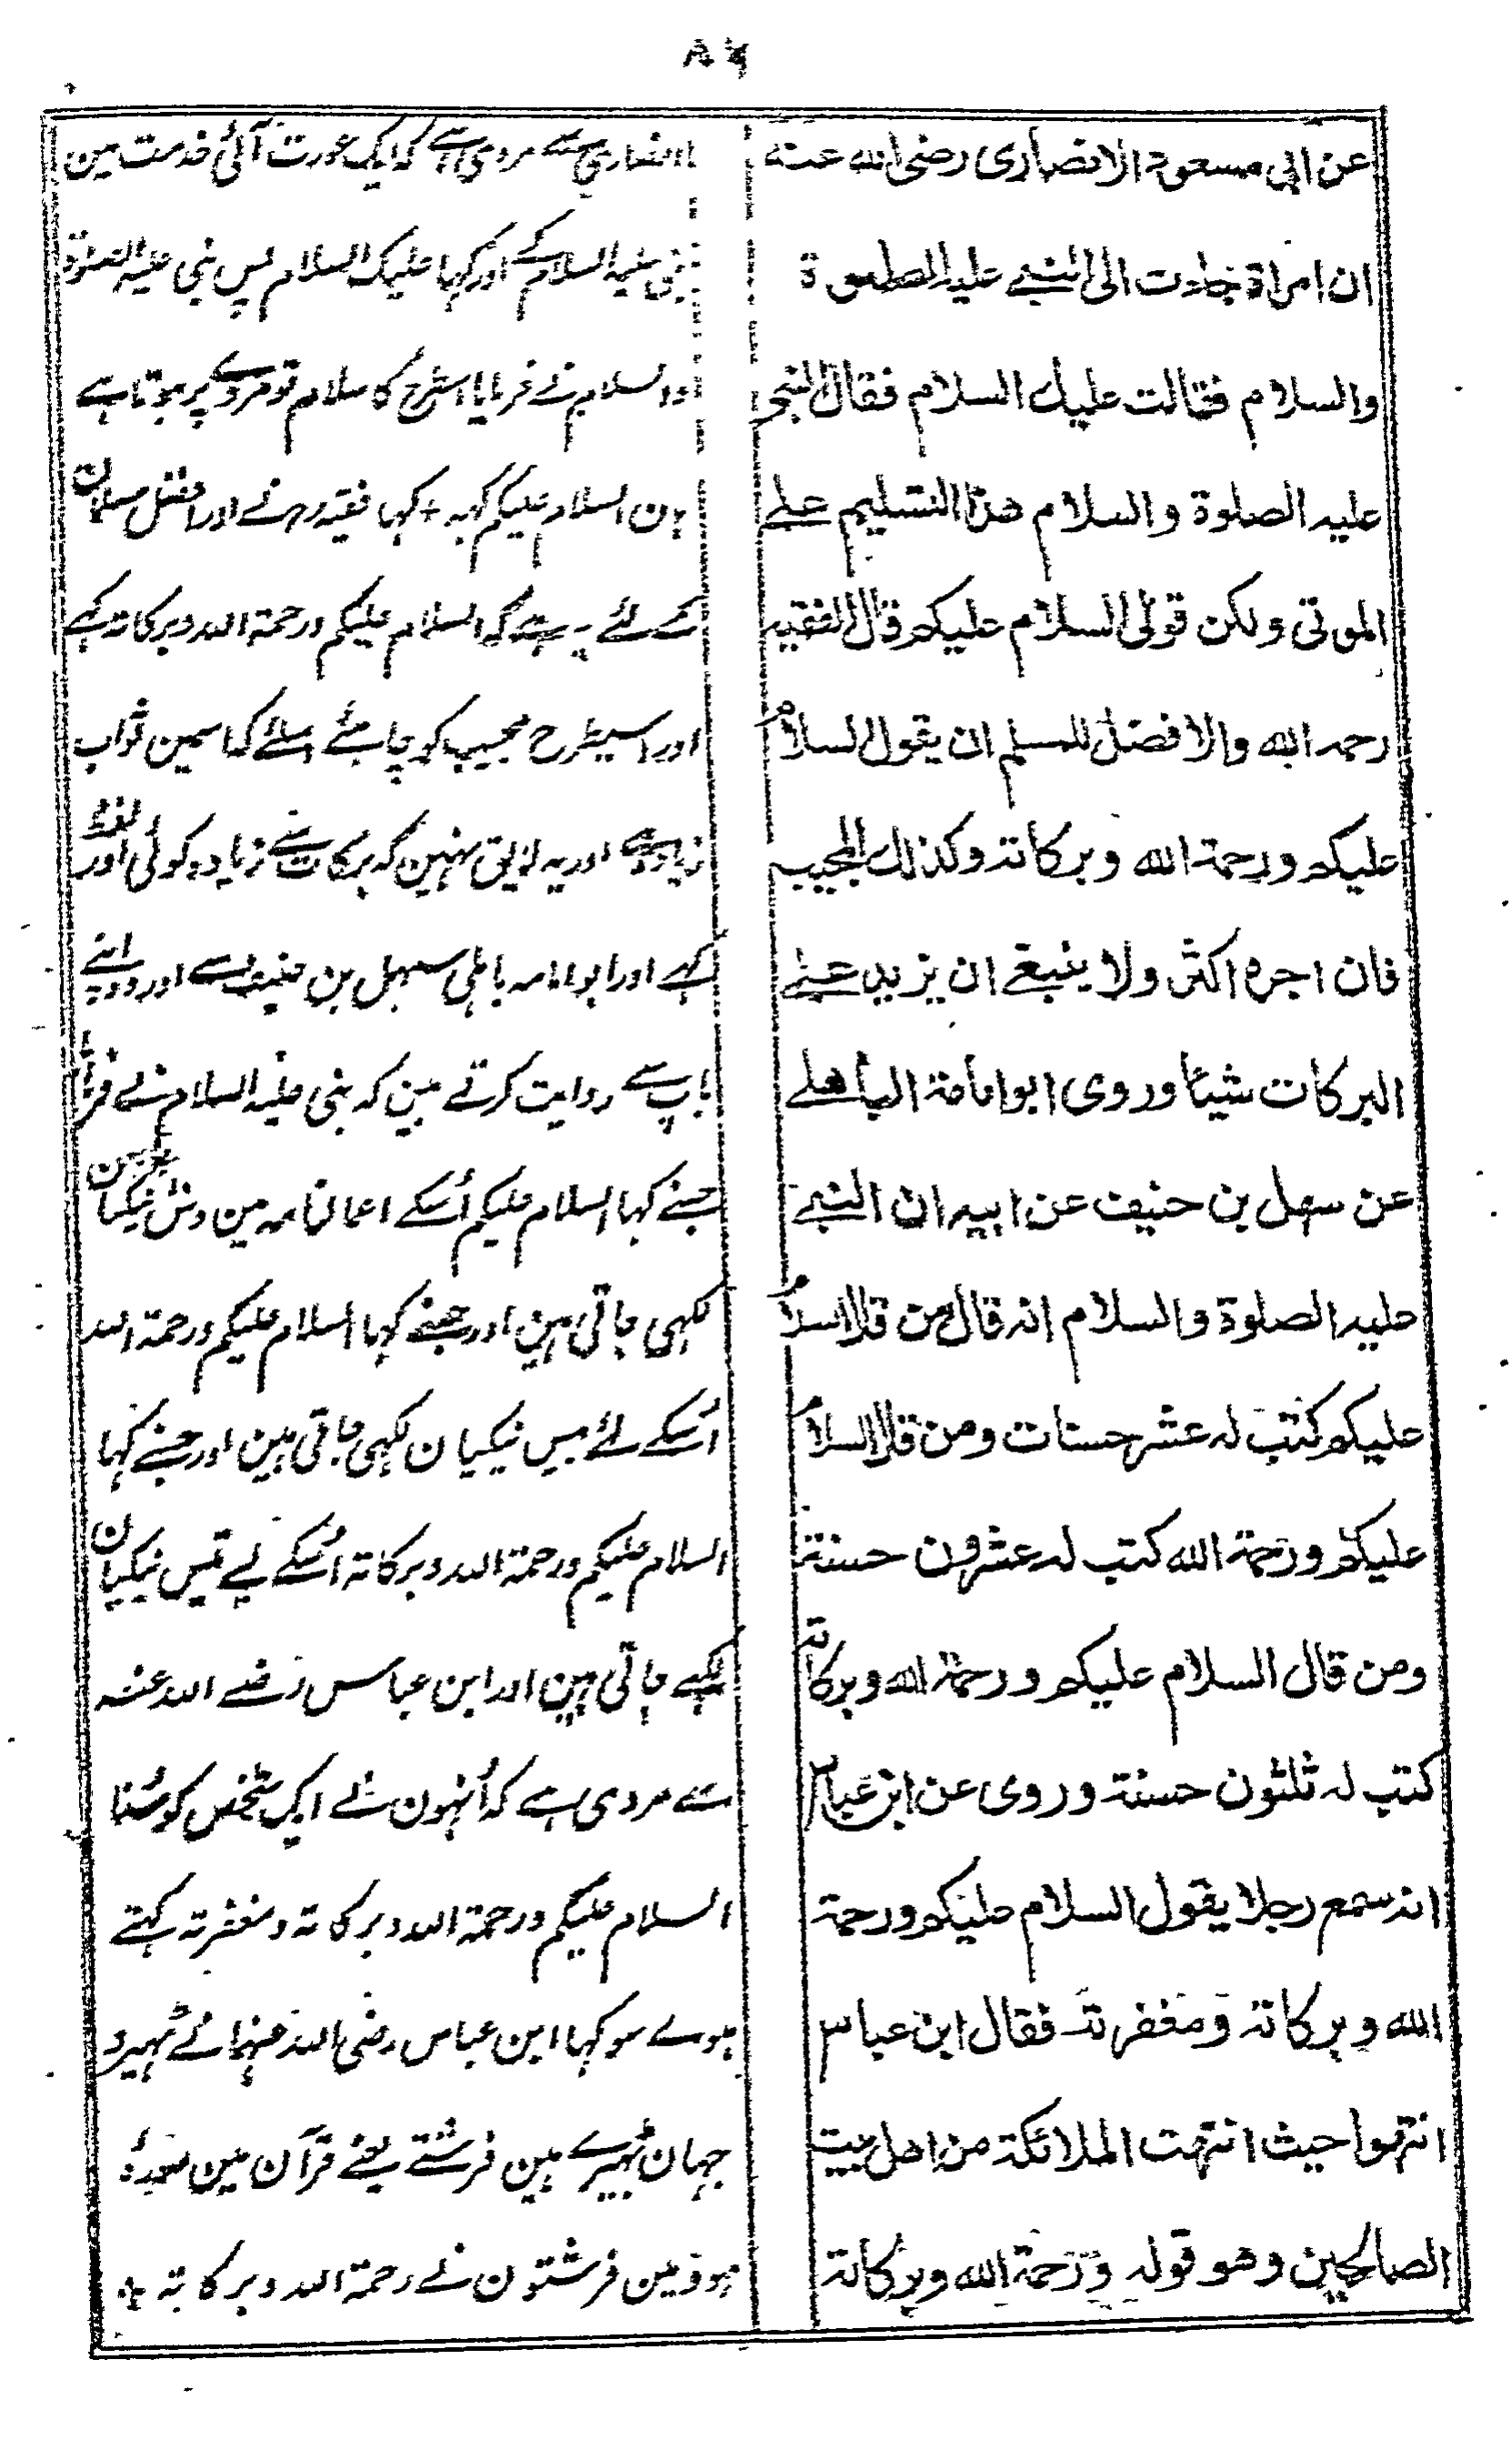 ٨٦
عن ابی مسعود الانصاری رضی الله عنه
ان امراة جاءت الی النبے علیه الصلوة
والسلام فقالت علیك السلام فقال النبی
علیه الصلوة والسلام هذا التسلیم علے
الموتی ولکن قولی السلام علیکم قال الفقیه
رحمه الله والافضل للمسلم ان یقول السلام
علیکم ورحمة الله وبرکاته وکذلك المجیب
فان اجره اکثر ولا ینبغے ان یزید علے
البرکات شیئا وروی ابو امامة الباهلے
عن سهل بن حنیف عن ابیه ان النبے
علیه الصلوة والسلام انه قال من قال السلام
علیکم کتب له عشر حسنات ومن قال السلام
علیکم ورحمة الله کتب له عشرون حسنة
ومن قال السلام علیکم ورحمة الله وبرکاته
کتب له ثلثون حسنة وروی عن ابن عباس
انه سمع رجلا یقول السلام علیکم ورحمة
الله وبرکاته ومغفرته فقال ابن عباس
انتهوا حیث انتهت الملائکة من اهل بیت
الصالحین وهو قوله ورحمة الله وبرکاته
انصاری سے مروی ہے کہ ایک عورت آئی خدمت مین
نبی علیہ السلام کے اور کہا علیک السلام پس نبی علیہ الصلوة
والسلام نے فرمایا اسطرح کا سلام تو مردے پر ہوتا ہے
ہان السلام علیکم کہہ + کہا فقیہ رہ نے اور افضل مسلمان
کے لئے یہ ہے کہ السلام علیکم ورحمة اللہ وبرکاتہ کہے
اور اسیطرح مجیب کو چاہئے اسلئے کہ اسمین ثواب
زیادہ ہے اور یہ لایق نہین کہ برکات سے زیادہ کوئی اور لفظ
کہے اور ابو امامہ باہلی سہل بن حنیف سے اور وہ اپنے
باپ سے روایت کرتے ہین کہ نبی علیہ السلام نے فرمایا
جسنے کہا السلام علیکم اُسکے اعمال نامہ مین دش نیکیان
لکہی جاتی ہین اور جسنے کہا السلام علیکم ورحمة اللہ
اُسکے لئے بیس نیکیان لکہی جاتی ہین اور جسنے کہا
السلام علیکم ورحمة اللہ وبرکاتہ اُسکے لیے تیس نیکیان
لکہے جاتی ہین اور ابن عباس رضے اللہ عنہ
سے مروی ہے کہ اُنہون نے ایک شخص کو سُنا
السلام علیکم ورحمة اللہ وبرکاتہ ومغفرتہ کہتے
ہوے سو کہا ابن عباس رضی اللہ عنہما نے ٹہیرو
جہان ٹہیرے ہین فرشتے یعنے قرآن مین
فرشتون نے رحمة اللہ وبرکاتہ +